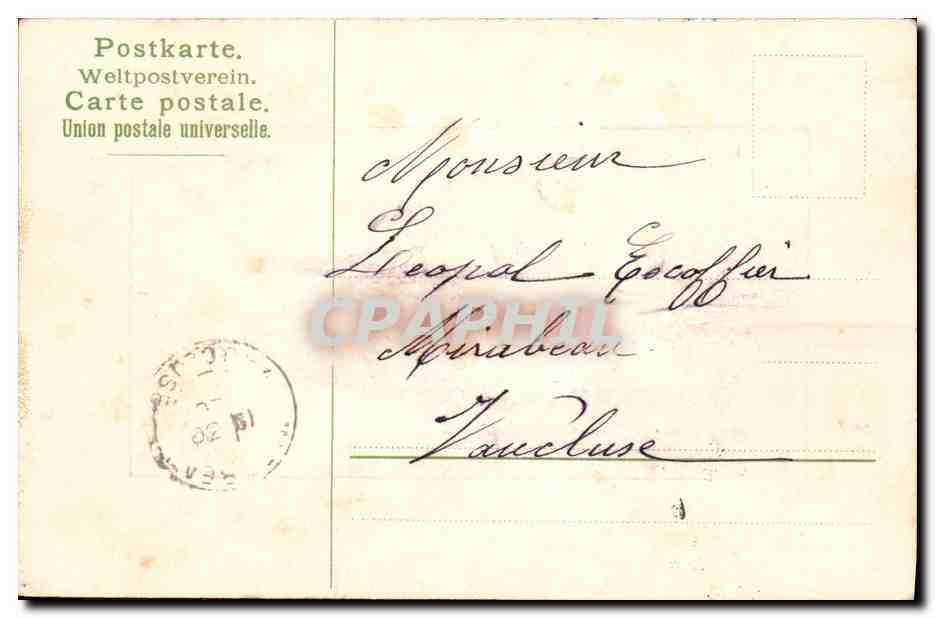 Postkarte.
Weltpostverein.
Carte postale.
Union postale universelle.
Monsieur
Leopol Escoffier
CPAPHIL
Mirabeau
Vaucluse